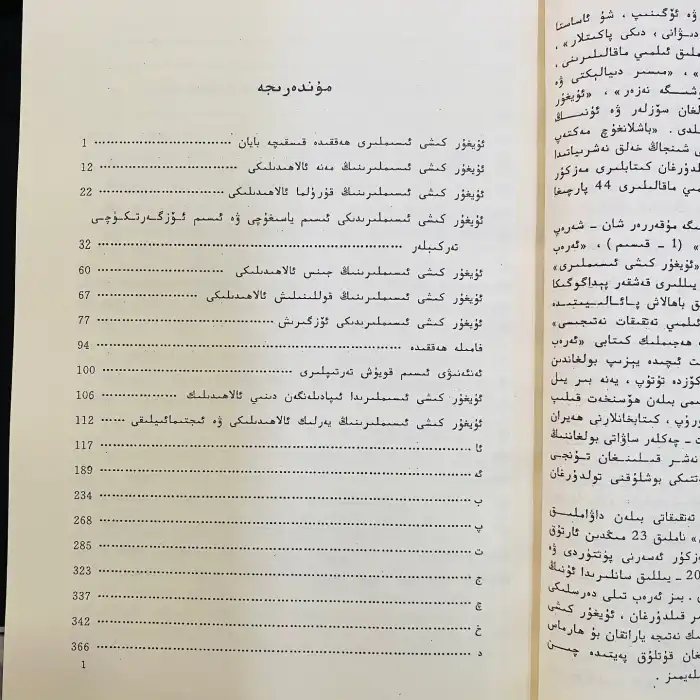 مۇندەرىجە
ئۇيغۇر كىشى ئىسىملىرى ھەققىدە قىسقىچە بايان ........ 1
ئۇيغۇر كىشى ئىسىملىرىنىڭ مەنە ئالاھىدىلىكى ........ 12
ئۇيغۇر كىشى ئىسىملىرىنىڭ قۇرۇلما ئالاھىدىلىكى ........ 22
ئۇيغۇر كىشى ئىسىملىرىدىكى ئىسىم ياسىغۇچى ۋە ئىسىم ئۆزگەرتكۈچى
تەركىبلەر ........ 32
ئۇيغۇر كىشى ئىسىملىرىنىڭ جىنىس ئالاھىدىلىكى ........ 60
ئۇيغۇر كىشى ئىسىملىرىنىڭ قوللىنىلىش ئالاھىدىلىكى ........ 67
ئۇيغۇر كىشى ئىسىملىرىدىكى ئۆزگىرىش ........ 77
فامىلە ھەققىدە ........ 94
ئەنئەنىۋى ئىسىم قويۇش تەرتىپلىرى ........ 100
ئۇيغۇر كىشى ئىسىملىرىدا ئىپادىلەنگەن دىنىي ئالاھىدىلىك ........ 106
ئۇيغۇر كىشى ئىسىملىرىنىڭ يەرلىك ئالاھىدىلىكى ۋە ئىجتىمائىيلىقى ...... 112
ئا ........ 117
ئە ........ 189
ب ........ 234
پ ........ 268
ت ........ 285
ج ........ 323
چ ........ 337
خ ........ 342
د ........ 366
1
ۋە ئۆگىنىپ ، شۇ ئاساستا
دىۋانى ، دىكى پاكىتلار» ،
ملىق ئىلمىي ماقالىلىرىنى ،
» ، «مىسىر دىيالېكتى ۋە
شىگە نەزەر» ، «ئۇيغۇر
لغان سۆزلەر ۋە ئۇنىڭ
لدى . «باشلانغۇچ مەكتەپ
ى شىنجاڭ خەلق نەشرىياتىدا
لدۇرغان كىتابلىرى مەزكۇر
مىي ماقالىلىرى 44 پارچىغا
گە مۇقەررەر شان ـ شەرەپ
» (1 ـ قىسىم) ، «ئەرەب
«ئۇيغۇر كىشى ئىسىملىرى»
يىللىرى قەشقەر پېداگوگىكا
ق باھالاش پائالىيىتىدە
ئىلمىي تەتقىقات نەتىجىسى»
ە ھەجىملىك كىتابى «ئەرەب
ت ئىچىدە يېزىپ بولغاندىن
كۆزدە تۇتۇپ ، يەنە بىر يىل
مى بىلەن ھۆسنخەت قىلىپ
رۇپ ، كىتابخانلارنى ھەيران
ت ـ چەكلەر ساۋاتى بولغانىنىڭ
نەشر قىلىنىغان تۇنجى
تتىكى بوشلۇقنى تولدۇرغان
تەتقىقاتى بىلەن داۋاملىق
» ناملىق 23 مىڭدىن ئارتۇق
زكۇر ئەسەرنى پۈتتۈردى ۋە
20 ـ يىللىق سانلىرىدا ئۇنىڭ
ى . بىز ئەرەب تىلى دەرسلىكى
ىر قىلدۇرغان ، ئۇيغۇر كىشى
ىك نەتىجە ياراتقان بۇ ھارماس
غان قۇتلۇق پەيتىدە چىن
لەيمىز .